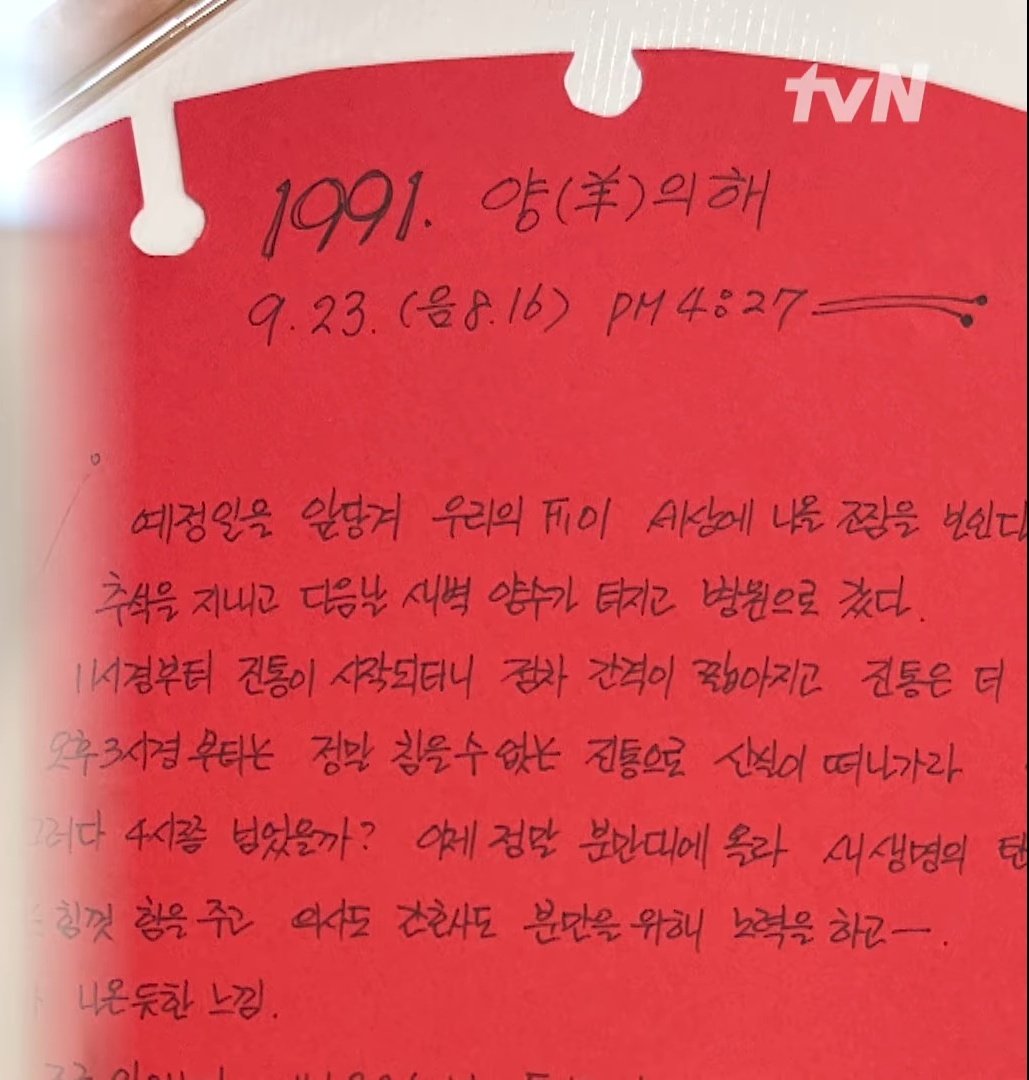 tvN
1991. 양(羊)의 해
9.23. (음8.16) PM 4:27
예정일을 앞당겨 우리의 Fi이 세상에 나올 조짐을 보인다
추석을 지내고 다음날 새벽 양수가 터지고 병원으로 갔다.
11시경부터 진통이 시작되더니 점차 간격이 짧아지고 진통은 더
오후3시경 부터는 정말 참을 수 없는 진통으로 산실이 떠나가라
그러다 4시쯤 넘었을까? 이제 정말 분만대에 올라 새생명의 탄
힘껏 힘을 주고 의사도 간호사도 분만을 위해 노력을 하고ㅡ.
나온듯한 느낌.